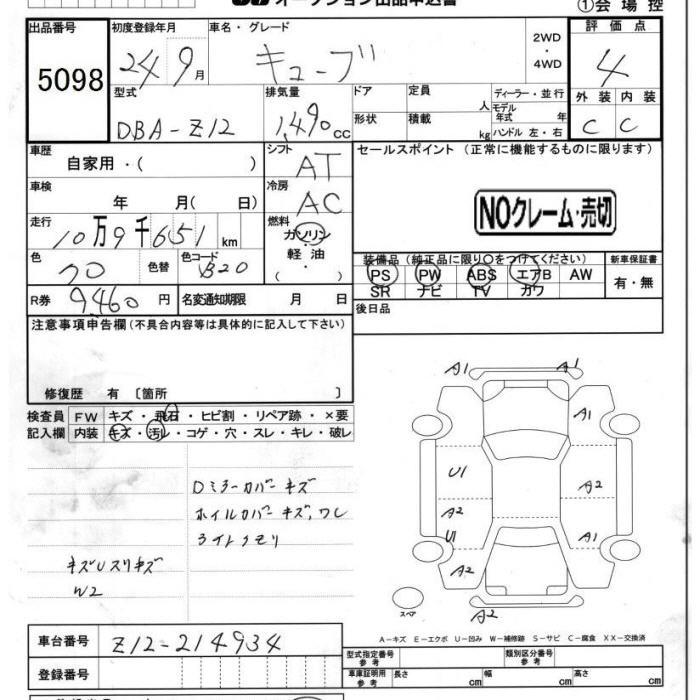 オークション出品申込書
①会場控
出品番号 初度登録年月 車名・グレード 2WD・4WD 評価点
5098 24 9月 キューブ 4
型式 排気量 ドア 定員 人 ディーラー・並行 外装 内装
DBA-Z12 1,490cc 形状 積載 kg モデル年式 年 ハンドル 左・右 C C
車歴 自家用・( ) シフト AT セールスポイント (正常に機能するものに限ります)
車検 年 月( 日) 冷房 AC
NOクレーム・売切
走行 10万9千651km 燃料 ガソリン・軽油・( )
装備品(純正品に限り〇をつけてください) 新車保証書
色 クロ 色替 色コード B20 PS PW ABS エアB AW 有・無
SR ナビ TV カワ
R券 9,460円 名変通知期限 月 日 後日品
注意事項申告欄(不具合内容等は具体的に記入して下さい)
修復歴 有 〔箇所 〕
検査員 FW キズ・飛石・ヒビ割・リペア跡・×要
記入欄 内装 キズ・汚レ・コゲ・穴・スレ・キレ・破レ
A1 A1
A1
U1
A2
A2
U1 A1
A2
A2
スペア
Dミラーカバーキズ
ホイルカバーキズ、ワレ
ライトクモリ
キズUスリキズ
W2
A-キズ E-エクボ U-凹み W-補修跡 S-サビ C-腐食 XX-交換済
車台番号 Z12-214934
型式指定番号 参考 類別区分番号 参考
登録番号 車庫証明用 参考 長さ cm 幅 cm 高さ cm